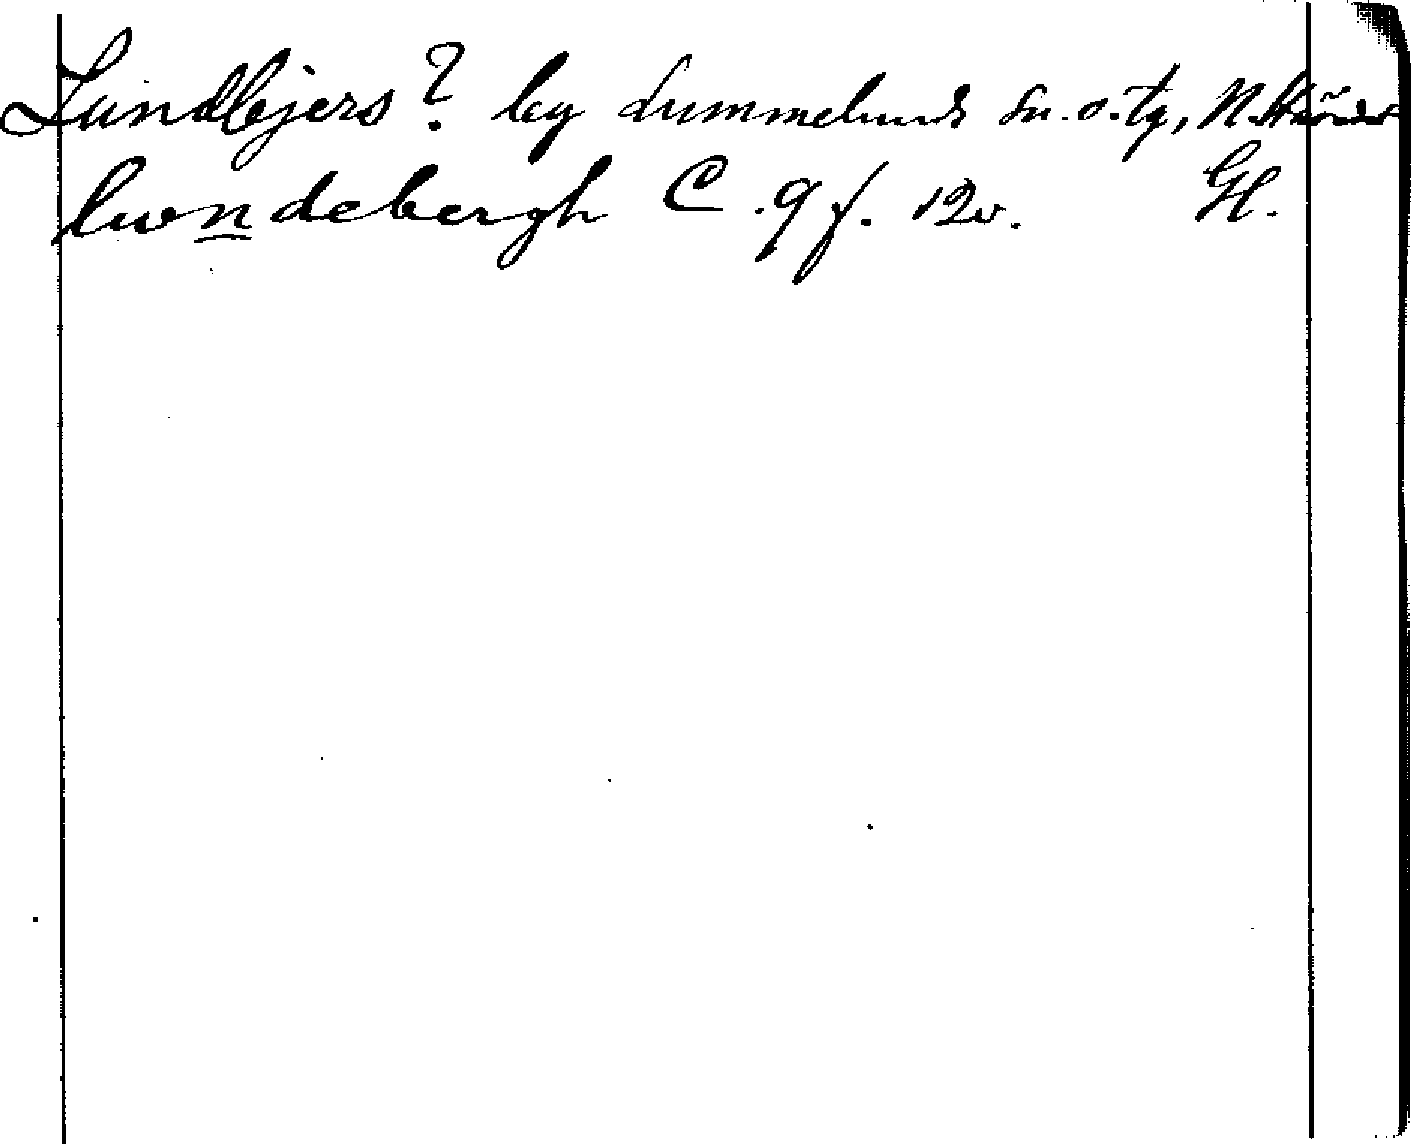 Lundbjers? by Lummelunds sn. o. tg, N. Härad
lwndebergh C. 9 f. 12v. Gl.